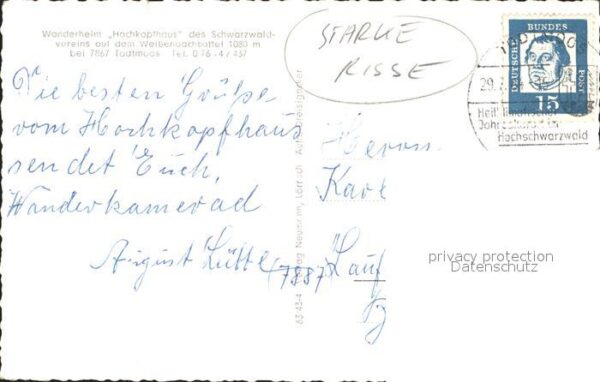 Wanderheim „Hochkopfhaus" des Schwarzwald-
vereins auf dem Weißenbachsattel 1080 m
bei 7867 Todtmoos Tel. 0 76 - 4 / 437
STARKE
RISSE
DEUTSCHE BUNDES POST
15
29.
Heilklimatischer
Jahreskurort im
Hochschwarzwald
Die besten Grüße
vom Hochkopfhaus
sendet Euch,
Wanderkamerad
August Lütte
Herrn
Karl
(7887) Lauf
privacy protection
Datenschutz
63 43-4 Verlag Neumann, Lörrach